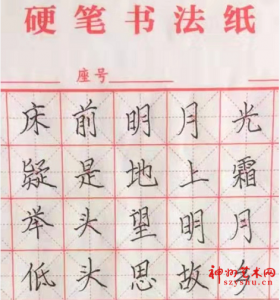 硬笔书法纸
座号
床前明月光
疑是地上霜
举头望明月
低头思故多
神州艺术网
szysw.cn